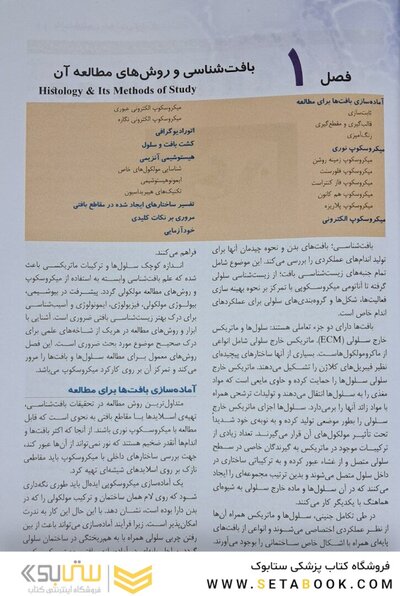 فصل ۱
بافت‌شناسی و روش‌های مطالعه آن
Histology & Its Methods of Study
آماده‌سازی بافت‌ها برای مطالعه
ثابت‌سازی
قالب‌گیری و مقطع‌گیری
رنگ‌آمیزی
میکروسکوپ نوری
میکروسکوپ زمینه روشن
میکروسکوپ فلورسنت
میکروسکوپ فاز کنتراست
میکروسکوپ هم کانون
میکروسکوپ پلاریزه
میکروسکوپ الکترونی
میکروسکوپ الکترونی عبوری
میکروسکوپ الکترونی نگاره
اتورادیوگرافی
کشت بافت و سلول
هیستوشیمی آنزیمی
شناسایی مولکول‌های خاص
ایمونوهیستوشیمی
تکنیک‌های هیبریداسیون
تفسیر ساختارهای ایجاد شده در مقاطع بافتی
مروری بر نکات کلیدی
خودآزمایی
بافت‌شناسی؛ بافت‌های بدن و نحوه چیدمان آنها برای
تولید اندام‌های عملکردی را بررسی می‌کند. این موضوع شامل
تمام جنبه‌های زیست‌شناسی بافت؛ از زیست‌شناسی سلولی
گرفته تا آناتومی میکروسکوپی با تمرکز بر نحوه بهینه سازی
فعالیت‌ها، شکل‌ها و گروه‌بندی‌های سلولی برای عملکردهای
اندام خاص است.
بافت‌ها دارای دو جزء تعاملی هستند: سلول‌ها و ماتریکس
خارج سلولی (ECM). ماتریکس خارج سلولی شامل انواعی
از ماکرومولکول‌هاست. بسیاری از آنها ساختارهای پیچیده‌ای
نظیر فیبریل‌های کلاژن را تشکیل می‌دهند. ماتریکس خارج
سلولی سلول‌ها را حمایت کرده و حاوی مایعی است که مواد
مغذی را به سلول‌ها انتقال می‌دهند، و تولیدات ترشحی همراه
با مواد زائد آنها را برمی‌دارد. سلول‌ها اجزای ماتریکس خارج
سلولی را بطور موضعی تولید کرده و به نوبه‌ی خود شدیداً
تحت تأثیر مولکول‌های آن قرار می‌گیرند. تعداد زیادی از
ترکیبات موجود در ماتریکس به گیرندگان خاصی در سطح
سلولی متصل و از غشاء عبور کرده و به ترکیباتی ساختاری در
داخل سلول متصل می‌شوند و بدین ترتیب مجموعه‌ای را ایجاد
می‌کنند که در آن سلول‌ها و ماده خارج سلولی به شیوه‌ای
هماهنگ با یکدیگر کار می‌کنند.
در طی تکامل جنینی سلول‌ها و ماتریکس همراه آن‌ها
از نظر عملکردی اختصاصی می‌شوند و انواعی از بافت‌های
پایه‌ای همراه با اشکال خاص ساختمانی را بوجود می‌آورند.
فراهم می‌کنند.
اندازه کوچک سلول‌ها و ترکیبات ماتریکسی باعث
شده که علم بافت‌شناسی وابسته به استفاده از میکروسکوپ
و روش‌های مطالعه مولکولی گردد. پیشرفت در بیوشیمی،
بیولوژی مولکولی، فیزیولوژی، ایمونولوژی و آسیب‌شناسی
برای درک بهتر زیست‌شناسی بافتی ضروری است. آشنایی با
ابزار و روش‌های مطالعه در هریک از شاخه‌های علمی برای
درک صحیح موضوع مورد بحث ضروری است. این فصل
روش‌های معمول برای مطالعه سلول‌ها و بافت‌ها را مرور
می‌کند و تمرکز آن بر روی کارکرد میکروسکوپ می‌باشد.
آماده‌سازی بافت‌ها برای مطالعه
متداول‌ترین روش مطالعه در تحقیقات بافت‌شناسی،
تهیه‌ی اسلایدها یا مقاطع بافتی به نحوی است که قابل
مطالعه با میکروسکوپ نوری باشند. از آنجا که اکثر بافت‌ها و
اندام‌ها آنقدر ضخیم هستند که نور نمی‌تواند از آن‌ها عبور کند،
جهت بررسی ساختارهای داخلی با میکروسکوپ باید مقاطعی
نازک بر روی اسلایدهای شیشه‌ای تهیه کرد.
یک آماده‌سازی میکروسکوپی ایده‌آل باید طوری نگه‌داری
شود که روی لام همان ساختمان و ترکیب مولکولی را که در
بدن دارا بوده است، نشان دهد. با این حال این کار به ندرت
امکان‌پذیر است. زیرا فرآیند آماده‌سازی می‌تواند باعث از بین
رفتن برخی ترکیبات سلولی همراه با به هم‌ریختگی در ساختمان سلولی
فروشگاه کتاب پزشکی ستابوک
WWW.SETABOOK.COM
ستابوک
فروشگاه اینترنتی کتاب